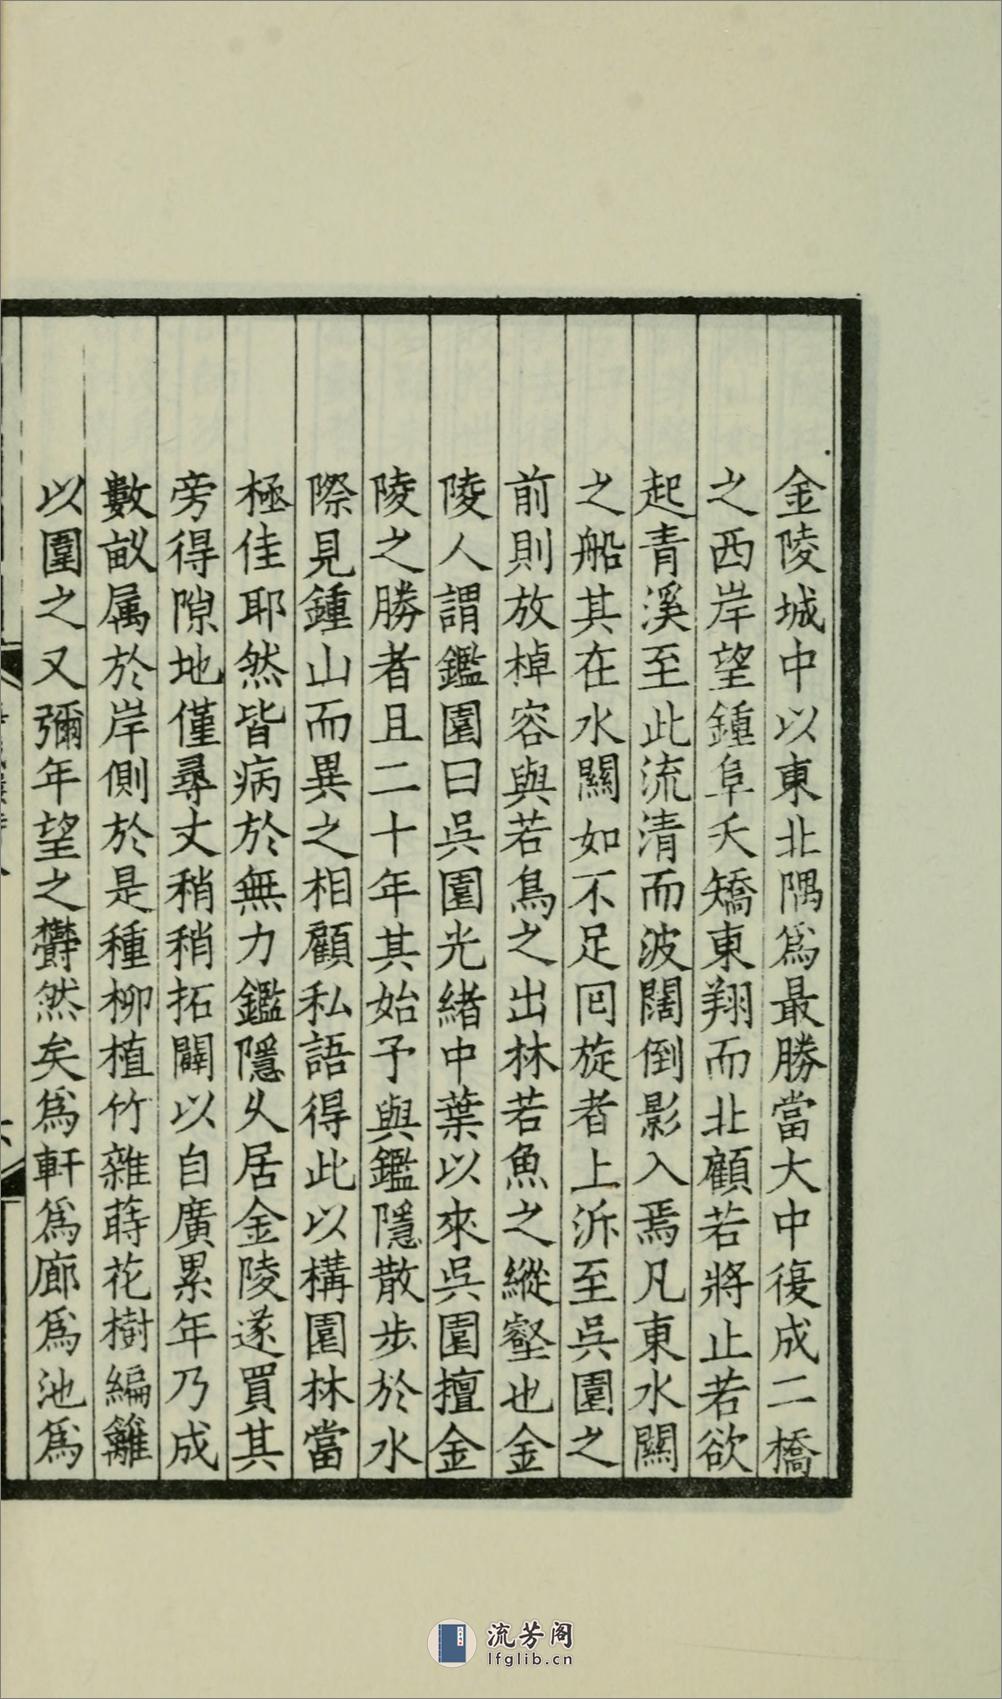 金陵城中以東北隅爲最勝當大中復成二橋
之西岸望鍾阜夭矯東翔而北顧若將止若欲
起青溪至此流清而波闊倒影入焉凡東水關
之船其在水關如不足回旋者上泝至吳園之
前則放棹容與若鳥之出林若魚之縱壑也金
陵人謂鑑園曰吳園光緒中葉以來吳園擅金
陵之勝者且二十年其始予與鑑隱散步於水
際見鍾山而異之相顧私語得此以構園林當
極佳耶然皆病於無力鑑隱久居金陵遂買其
旁得隙地僅尋丈稍稍拓闢以自廣累年乃成
數畝属於岸側於是種柳植竹雜蒔花樹編籬
以圍之又彌年望之欝然矣爲軒爲廊爲池爲
流芳阁
lfglib.cn